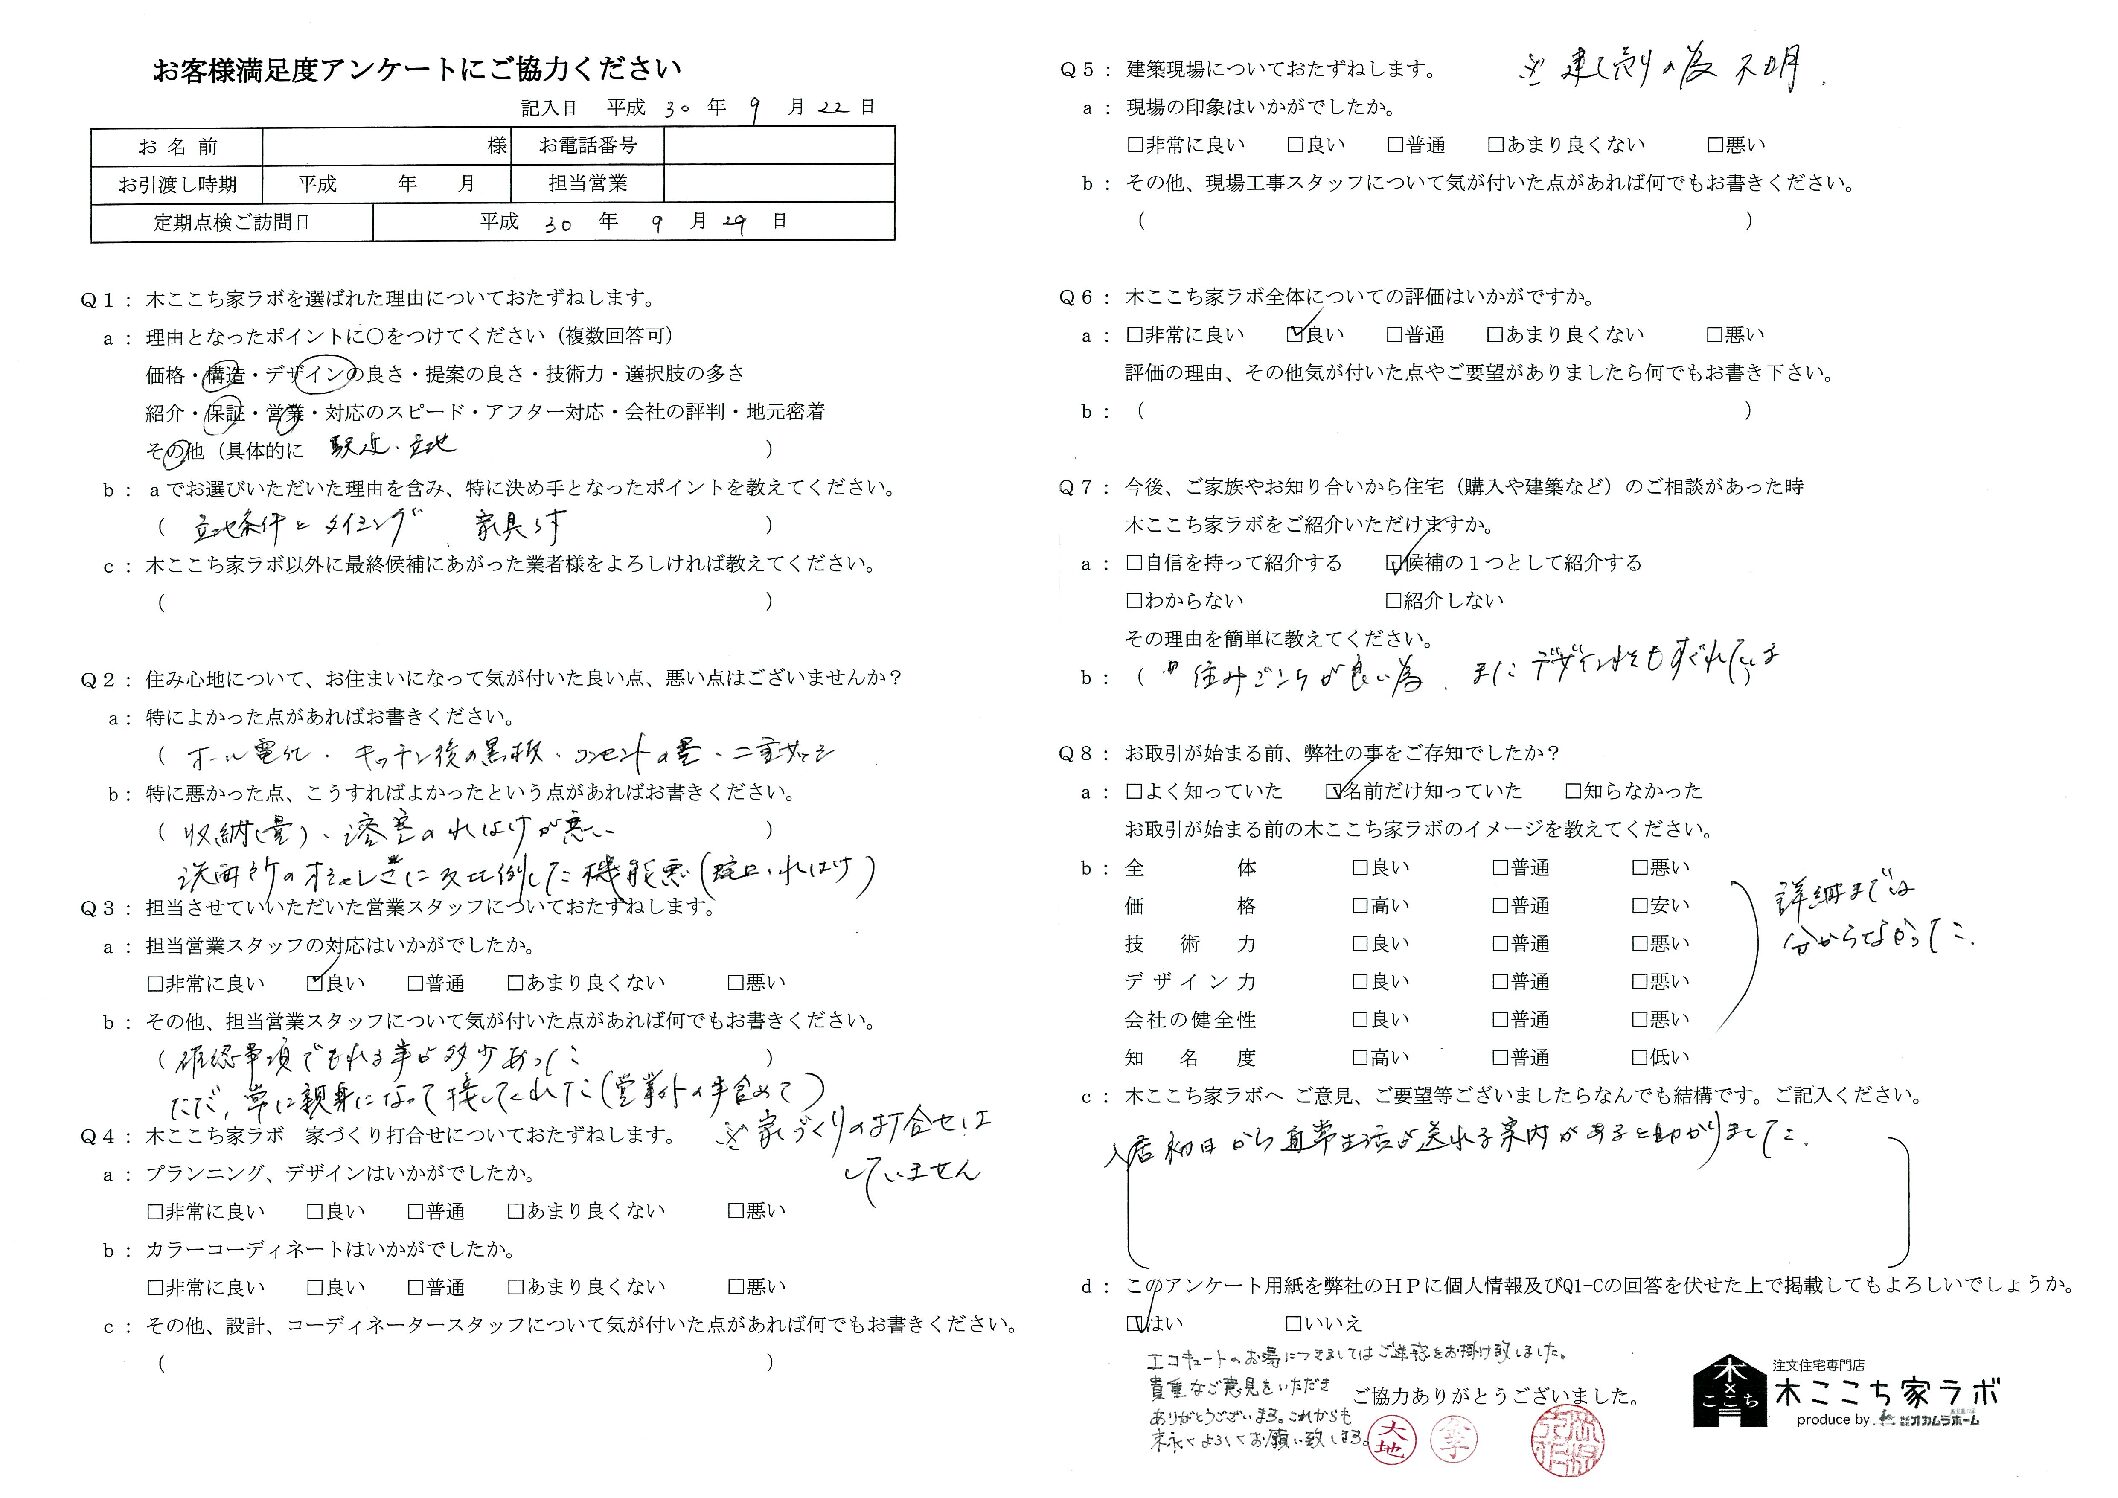 お客様満足度アンケートにご協力ください
記入日 平成 30 年 9 月 22 日
お名前 様 お電話番号
お引渡し時期 平成 年 月 担当営業
定期点検ご訪問日 平成 30 年 9 月 29 日
Q1：木ここち家ラボを選ばれた理由についておたずねします。
a：理由となったポイントに○をつけてください（複数回答可）
価格・構造・デザインの良さ・提案の良さ・技術力・選択肢の多さ
紹介・保証・営業・対応のスピード・アフター対応・会社の評判・地元密着
その他（具体的に 駅近・立地 ）
b：aでお選びいただいた理由を含み、特に決め手となったポイントを教えてください。
（ 立地条件とタイミング 家具付 ）
c：木ここち家ラボ以外に最終候補にあがった業者様をよろしければ教えてください。
（ ）
Q2：住み心地について、お住まいになって気が付いた良い点、悪い点はございませんか？
a：特によかった点があればお書きください。
（ オール電化・キッチン後の黒板・コンセントの量・二重サッシ
b：特に悪かった点、こうすればよかったという点があればお書きください。
（ 収納(量)、浴室の水はけが悪い ）
洗面所のオシャレさに反比例した機能悪(蛇口、水はけ)
Q3：担当させていいただいた営業スタッフについておたずねします。
a：担当営業スタッフの対応はいかがでしたか。
□非常に良い ☑良い □普通 □あまり良くない □悪い
b：その他、担当営業スタッフについて気が付いた点があれば何でもお書きください。
（ 確認事項でもれる事が多少あった ）
ただ、常に親身になって接してくれた(営業外の事含めて)
Q4：木ここち家ラボ 家づくり打合せについておたずねします。 ※家づくりの打合せは
していません
a：プランニング、デザインはいかがでしたか。
□非常に良い □良い □普通 □あまり良くない □悪い
b：カラーコーディネートはいかがでしたか。
□非常に良い □良い □普通 □あまり良くない □悪い
c：その他、設計、コーディネータースタッフについて気が付いた点があれば何でもお書きください。
（ ）
Q5：建築現場についておたずねします。 ※建て売りの為不明.
a：現場の印象はいかがでしたか。
□非常に良い □良い □普通 □あまり良くない □悪い
b：その他、現場工事スタッフについて気が付いた点があれば何でもお書きください。
（ ）
Q6：木ここち家ラボ全体についての評価はいかがですか。
a：□非常に良い ☑良い □普通 □あまり良くない □悪い
評価の理由、その他気が付いた点やご要望がありましたら何でもお書き下さい。
b：（ ）
Q7：今後、ご家族やお知り合いから住宅（購入や建築など）のご相談があった時
木ここち家ラボをご紹介いただけますか。
a：□自信を持って紹介する ☑候補の１つとして紹介する
□わからない □紹介しない
その理由を簡単に教えてください。
b：（ 住みごこちが良い為、またデザイン性もすぐれている
Q8：お取引が始まる前、弊社の事をご存知でしたか？
a：□よく知っていた ☑名前だけ知っていた □知らなかった
お取引が始まる前の木ここち家ラボのイメージを教えてください。
b：全体 □良い □普通 □悪い
価格 □高い □普通 □安い
技術力 □良い □普通 □悪い
デザイン力 □良い □普通 □悪い
会社の健全性 □良い □普通 □悪い
知名度 □高い □普通 □低い
詳細までは
分からなかった.
c：木ここち家ラボへ ご意見、ご要望等ございましたらなんでも結構です。ご記入ください。
入居初日から通常生活が送れる案内があると助かりました.
d：このアンケート用紙を弊社のＨＰに個人情報及びQ1-Cの回答を伏せた上で掲載してもよろしいでしょうか。
☑はい □いいえ
エコキュートのお湯につきましてはご迷惑をお掛け致しました。
貴重なご意見をいただき
ありがとうございます。これからも
末永くよろしくお願い致します。
ご協力ありがとうございました。
大地
李
木×ここち
注文住宅専門店
木ここち家ラボ
produce by オカムラホーム